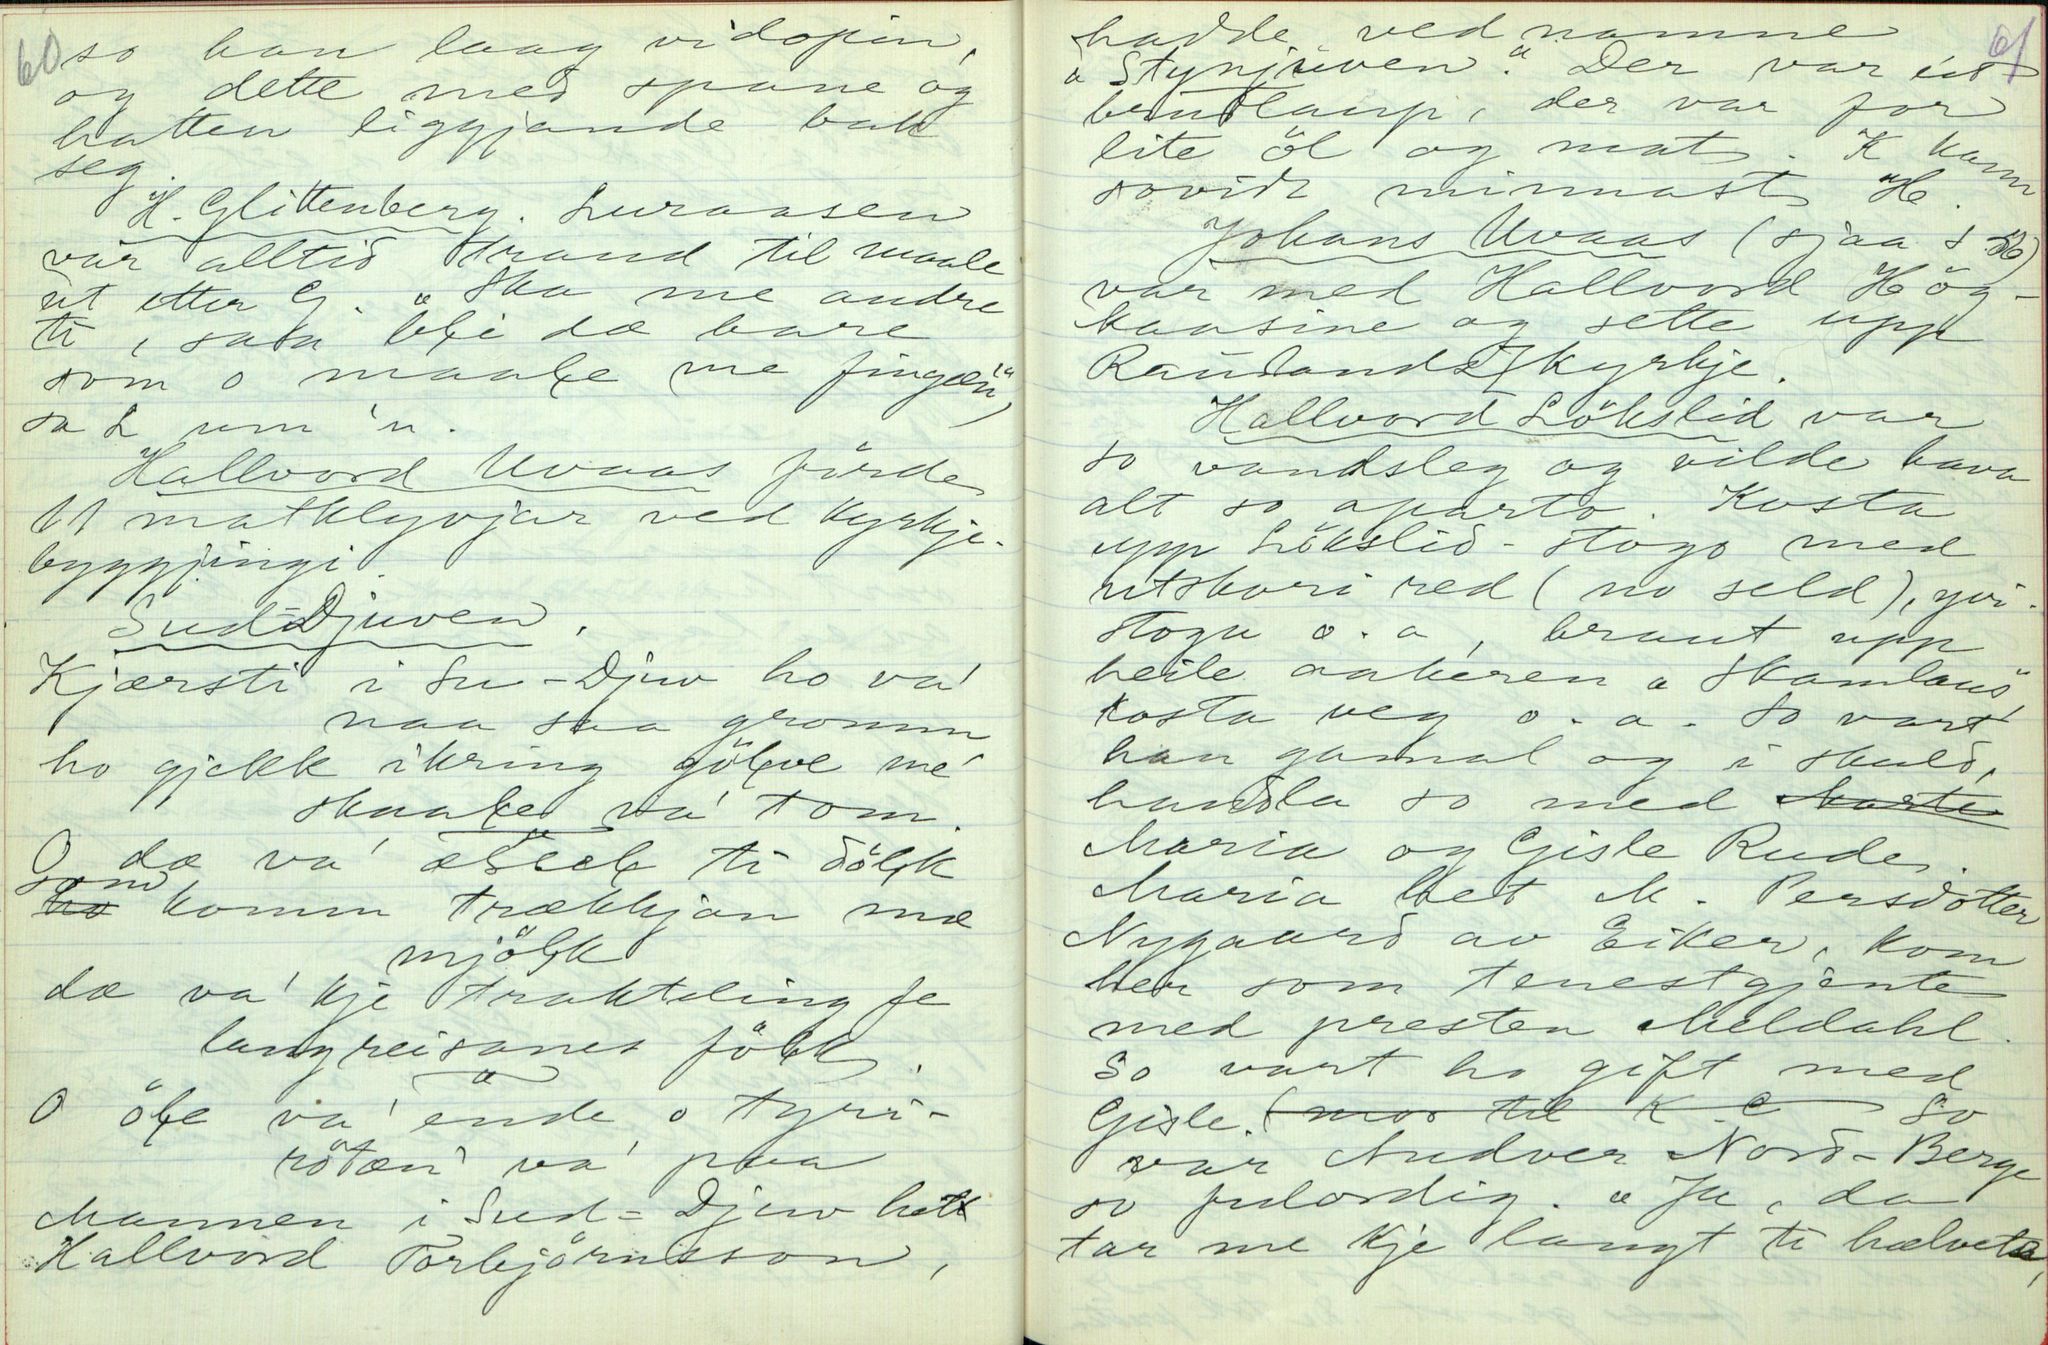 60
so han laag vidopin,
og dette med spune og
hatten liggjande bak
seg.
H. Glittenberg. Luraasen
var alltid strand til maale
ut etter G. "Ska me andre
ti, saa bli dæ bare
som o maale me fingæn"
sa L um 'n.
Hallvord Uvaas förde
11 matklyvjar ved kyrkje-
byggjingi.
Sud-Djuven.
Kjærsti i Su-Djuv ho va'
naa saa gromm
ho gjekk ikring gölve me'
skaale va' tom.
O dæ va' ti fölk
som komm trækkjan mæ
mjölk
dæ va' kje trakteling fe
langreisanes fölk.
O öle va' ende o tyri-
rötæn' va' paa
Mannen i Sud-Djuv hett
Hallvord Torbjörnsson,
61
hadde ved namne
"Stynjuven." Der var eit
brudlaup, der var for
lite öl og mat. K kann
sovidt minnast H.
Johans Uvaas (sjaa s. )
var med Hallvord Hög-
kaasine og sette upp
Raudlands kyrkje.
Hallvord Lökslid var
so vandsleg og vilde hava
alt so aparta. Kosta
upp Lökslid-stogo med
utskori red (no seld), yvi-
stogu o.a, braut upp
heile aakeren "Skamlaus",
kosta veg o.a. So vart
han gamal og i skuld,
handla so med Marte
Maria og Gisle Rude.
Maria het M. Persdotter
Nygaard av Eiker, kom
her som tenestgjente
med presten Meldahl.
So vart ho gift med
Gisle. (mor til K. So
var Audver Nord-Berge
so fulordig. "Ja, da
tar me kje langt ti hælvete,